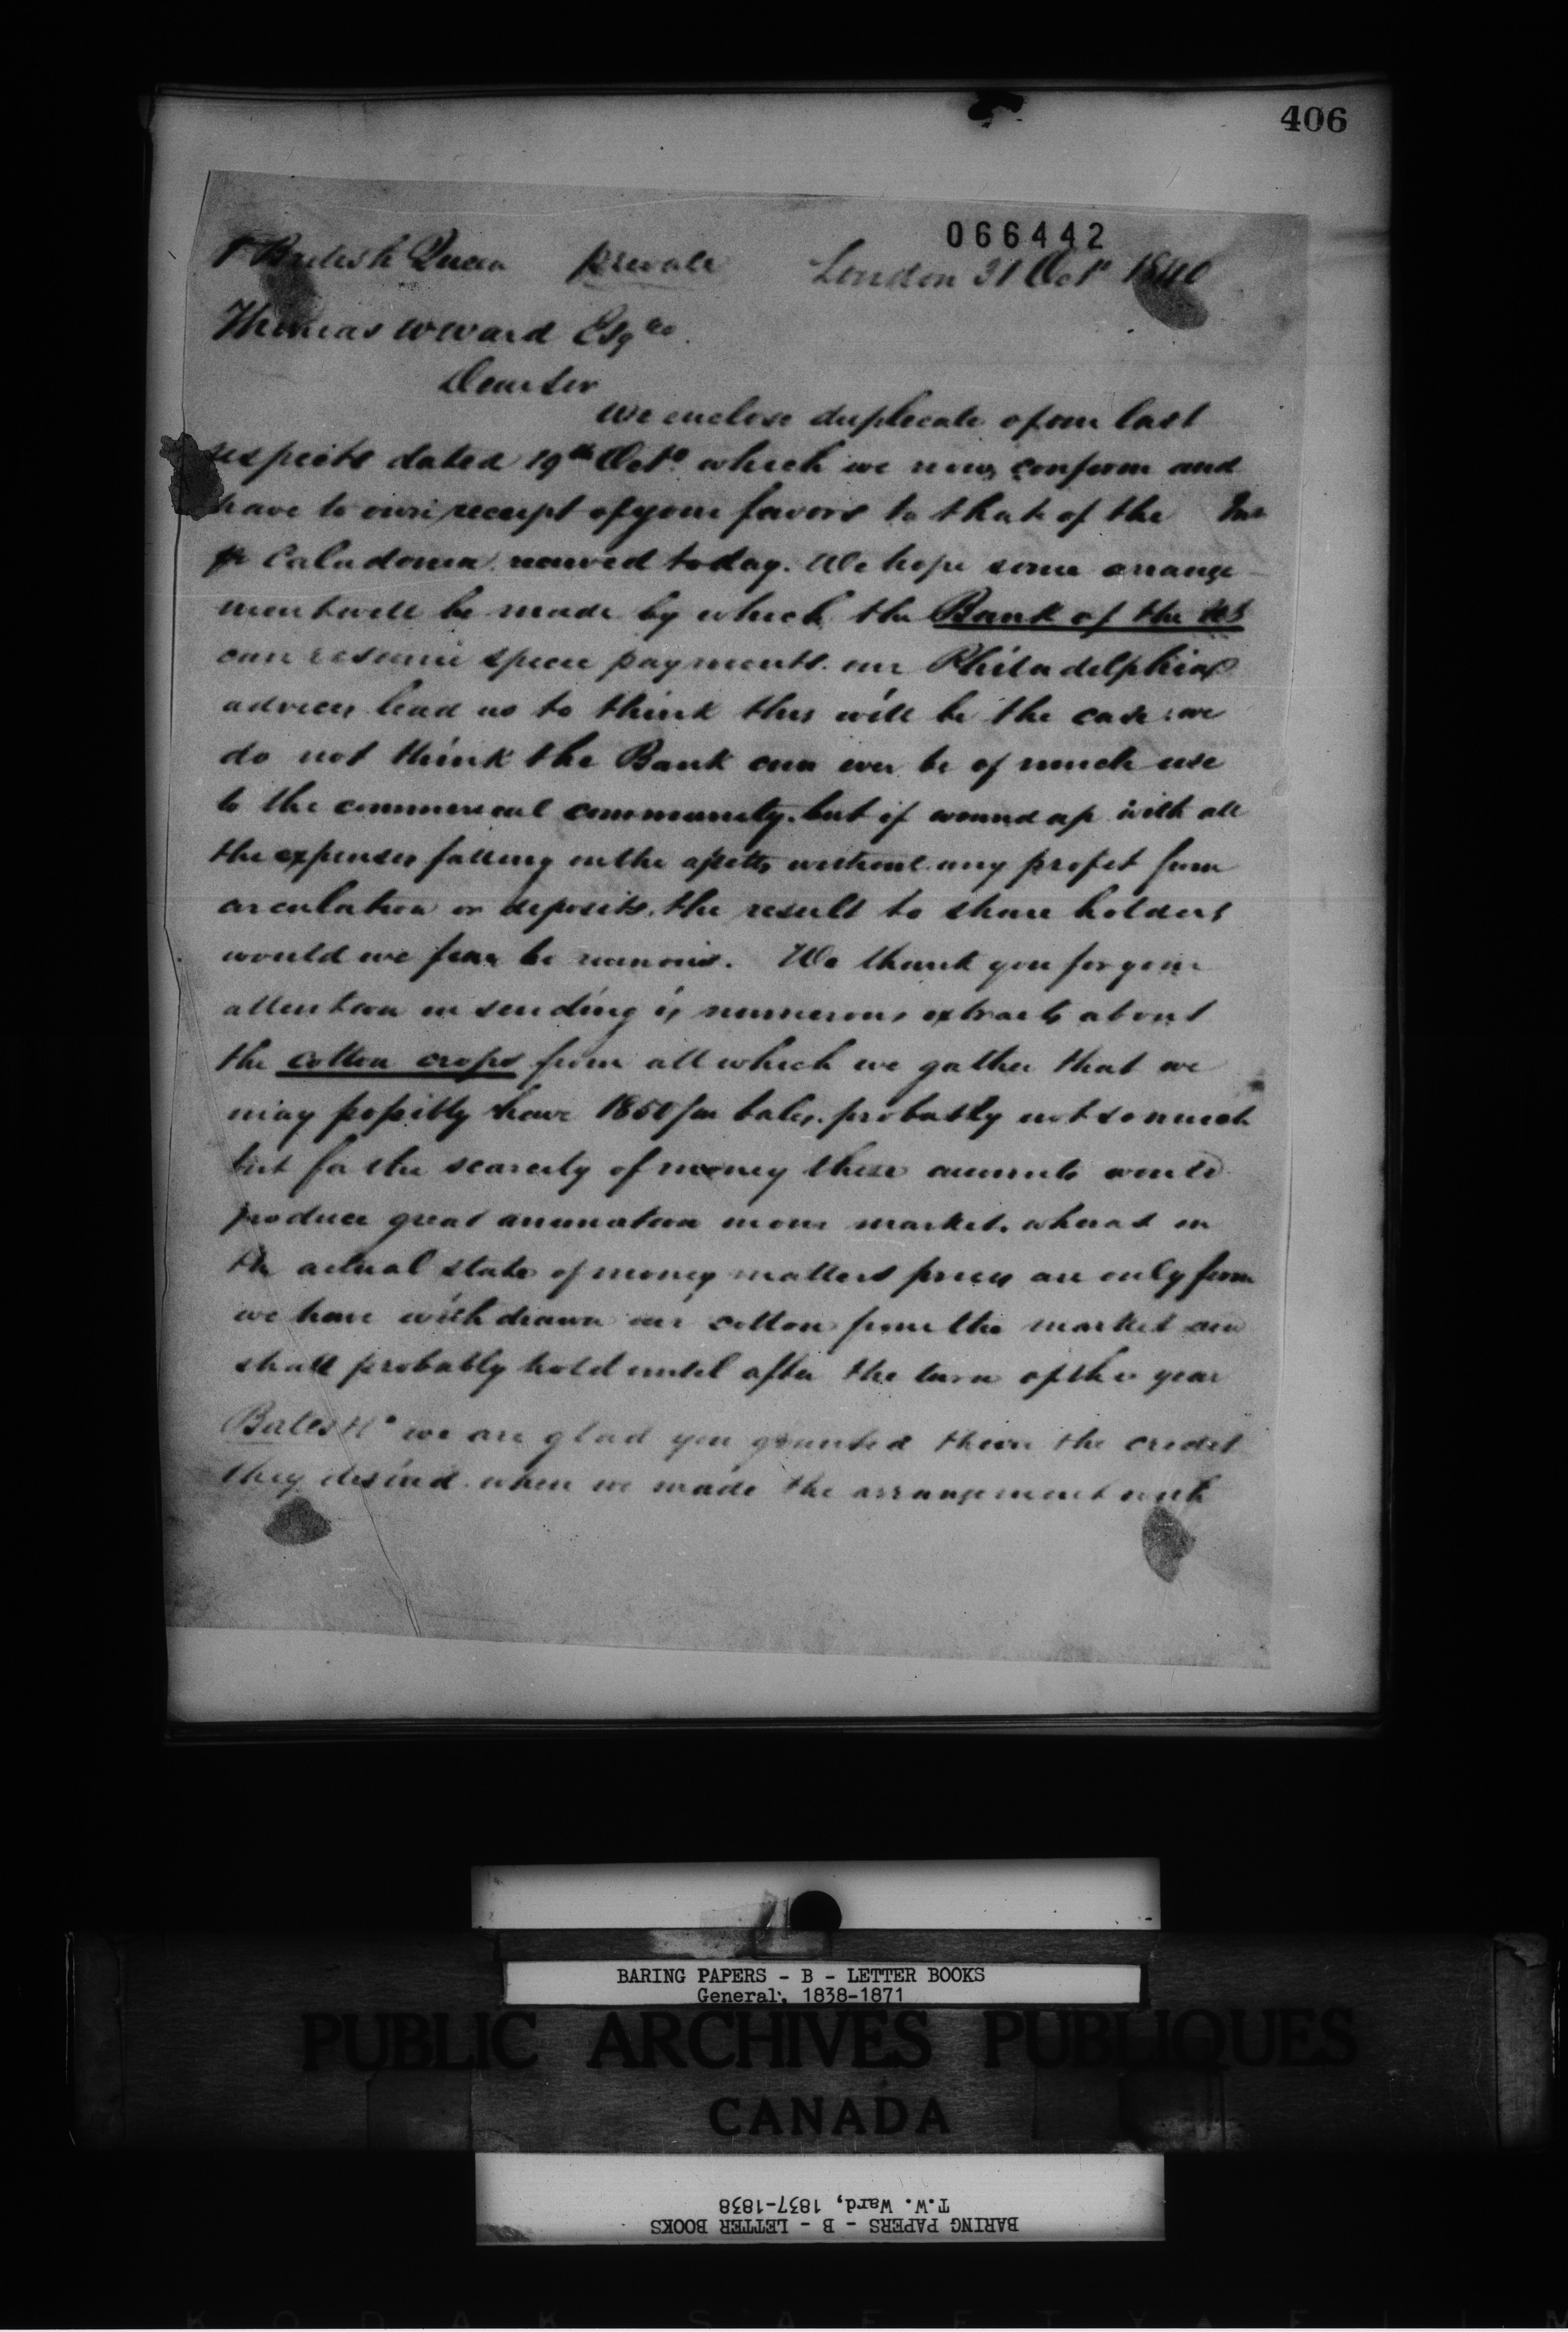 406
066442
P British Queen private London 31 Octr 1840
Thomas W Ward Esqre
Dear Sir
We enclose duplicate of our last
respects dated 19th Octo which we now confirm and
have to own receipt of your favors to that of the Inst
pr Caledonia received today. We hope some arrange
ment will be made by which the Bank of the US
can resume specie payments. our Philadelphia
advices lead us to think this will be the case: we
do not think the Bank can ever be of much use
to the commercial community. but if wound up with all
the expenses falling on the assetts without any profit from
circulation or deposits. the result to share holders
would we fear be ruinous. We thank you for your
attention in sending us numerous extracts about
the cotton crops from all which we gather that we
may possibly have 1850/m bales. probably not so much
but for the scarcity of money these accounts would
produce great animation in our market. whereas in
the actual state of money matters prices are only firm
we have withdrawn our cotton from the market and
shall probably hold until after the turn of the year
we are glad you granted them the credit
they desired. when we made the arrangement with
BARING PAPERS - B - LETTER BOOKS
General, 1838-1871
PUBLIC ARCHIVES PUBLIQUES
CANADA
T.W. Ward, 1837-1838
BARING PAPERS - B - LETTER BOOKS
KODAK SAFETY FILM